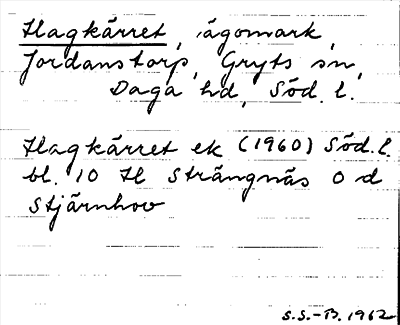 Hagkärret, ägomark,
Jordanstorp, Gryts sn,
Daga hd, Söd. l.
Hagkärret ek (1960) Söd. l.
bl. 10 H Strängnäs O d
Stjärnhov
S.S.-B. 1962